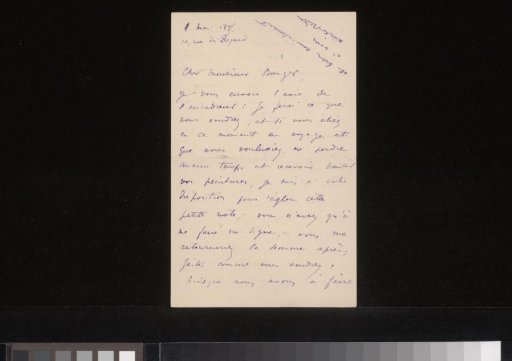 1 mai 18
10, rue de Regard
Cher Monsieur
je vous envoie l'avis de
l'encadreur : je ferai ce que
vous voudrez, et si vous étiez
en ce moment en voyage et
que vous voulussiez ne perdre
aucun temps et recevoir bientôt
vos peintures, je suis à votre
disposition pour régler cette
petite note ; vous n'avez qu'à
me faire un signe, vous me
retournerez la somme après ;
faites comme vous voudrez.
Puisque nous avons à faire